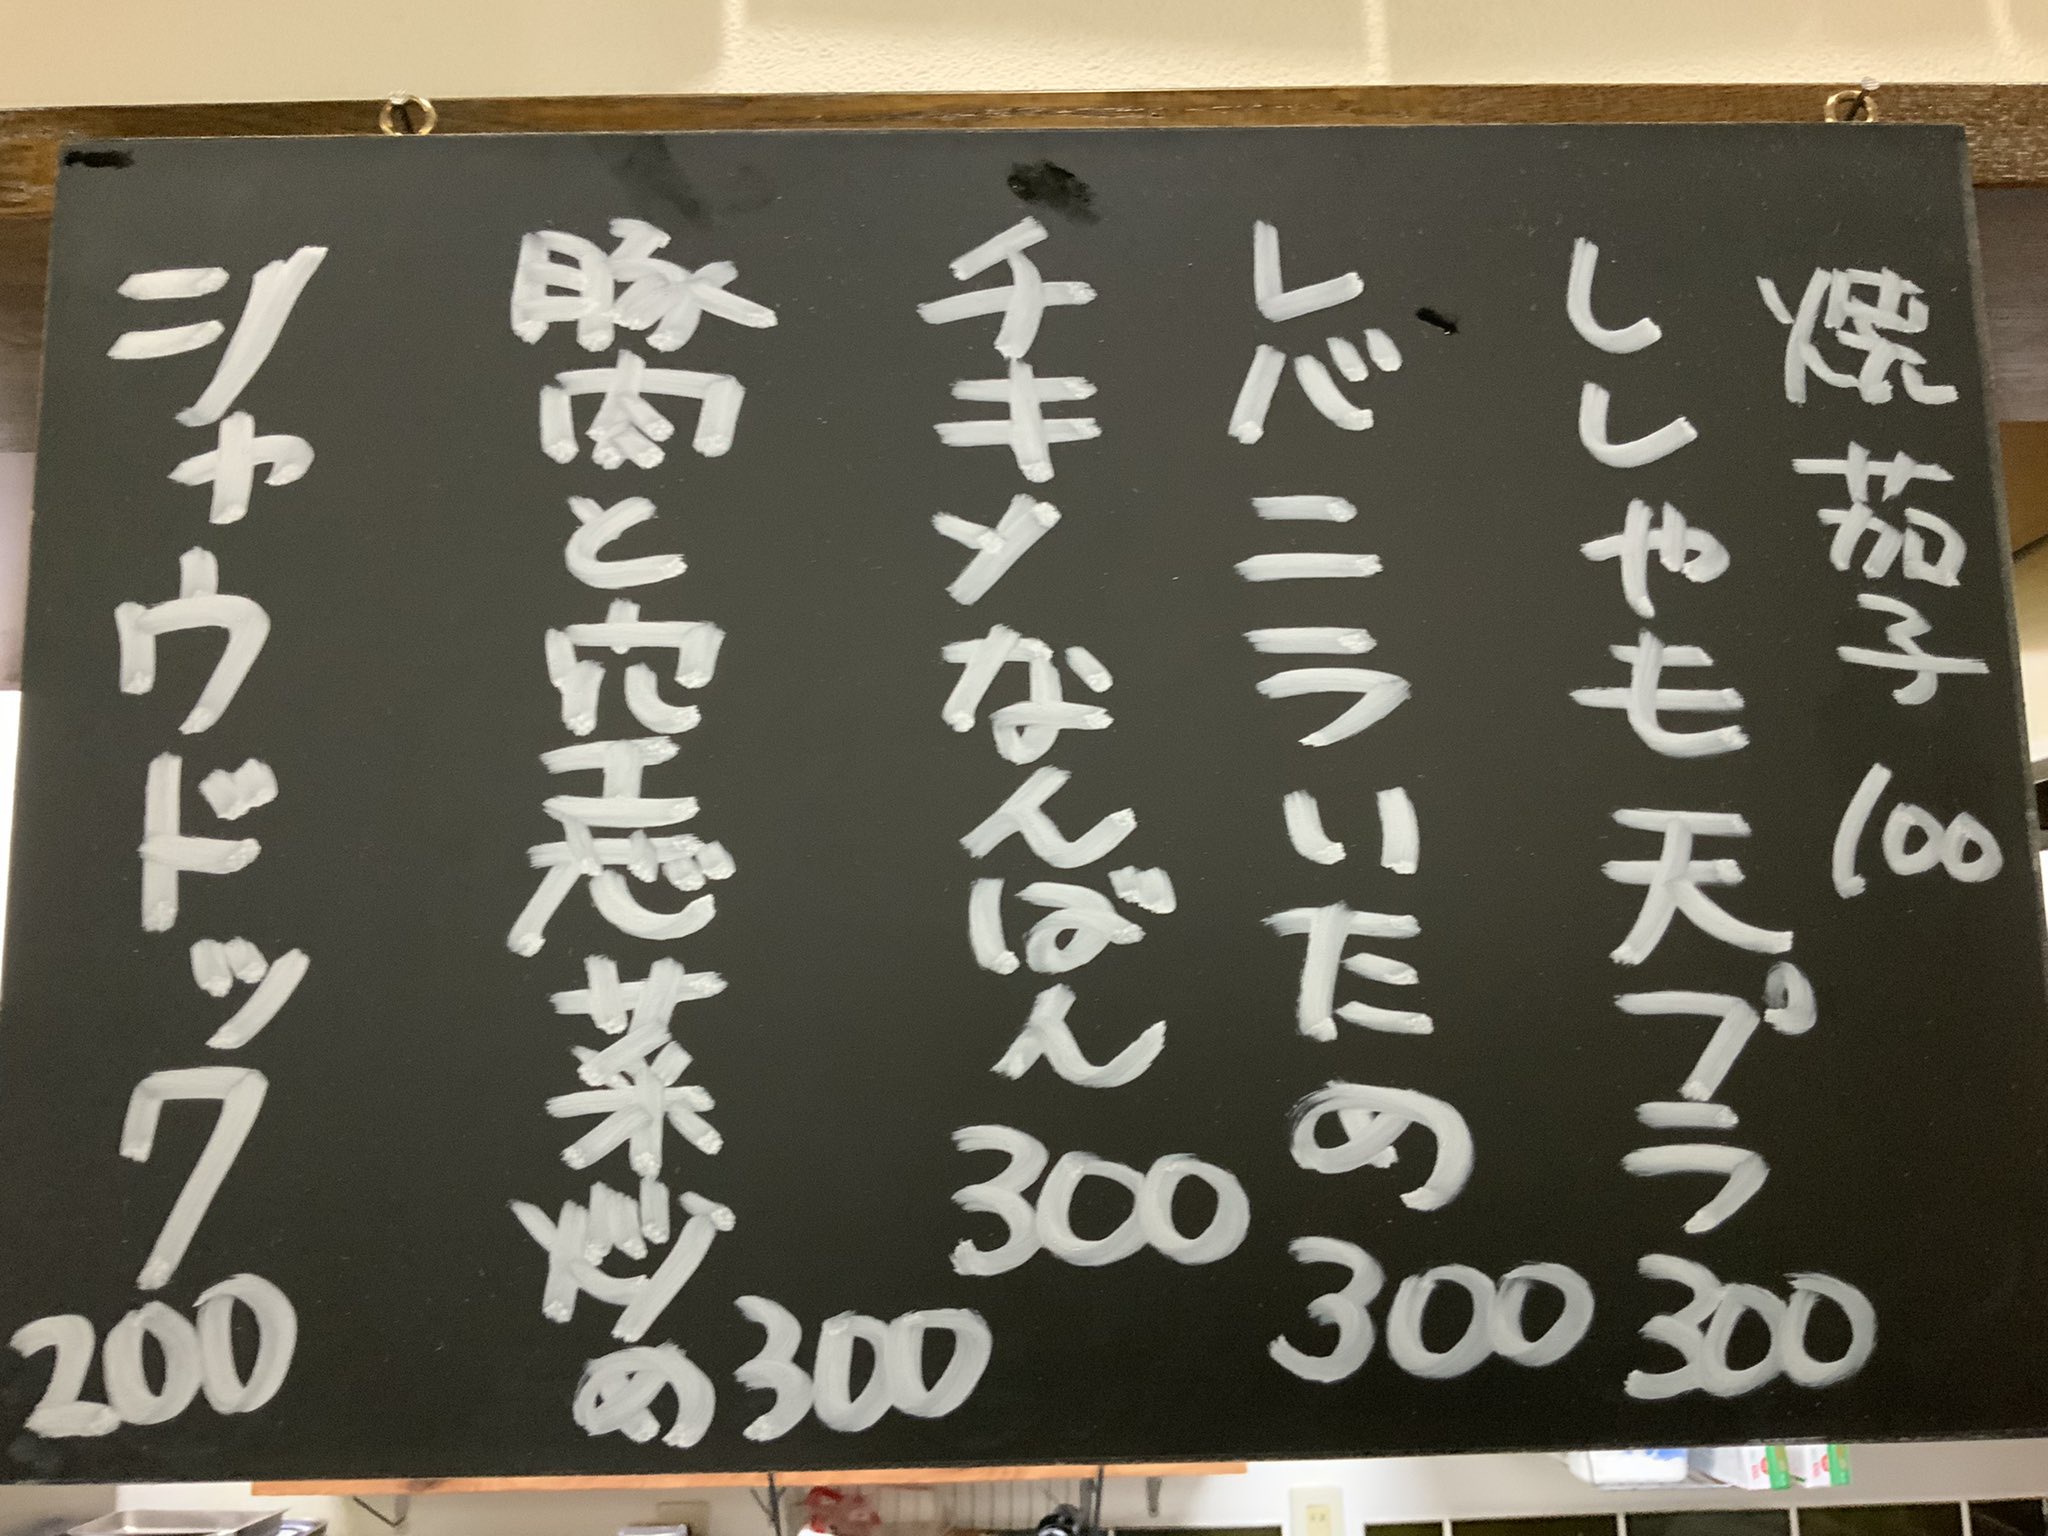 焼茄子 100
ししゃも天プラ 300
レバニラいため 300
チキンなんばん 300
豚肉と空芯菜炒め 300
シャウドック 200